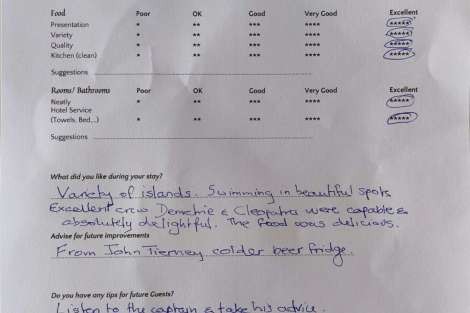 Food Poor OK Good Very Good Excellent
Presentation * ** *** **** *****
Variety * ** *** **** *****
Quality * ** *** **** *****
Kitchen (clean) * ** *** **** *****
Suggestions
Rooms/ Bathrooms Poor OK Good Very Good Excellent
Neatly * ** *** **** *****
Hotel Service
(Towels, Bed,..) * ** *** **** *****
Suggestions
What did you like during your stay?
Variety of islands. Swimming in beautiful spots
Excellent crew Demetrie & Cleopatra were capable &
absolutely delightful. The food was delicious.
Advise for future improvements
From John Tierney, colder beer fridge.
Do you have any tips for future Guests?
Listen to the captain & take his advice.